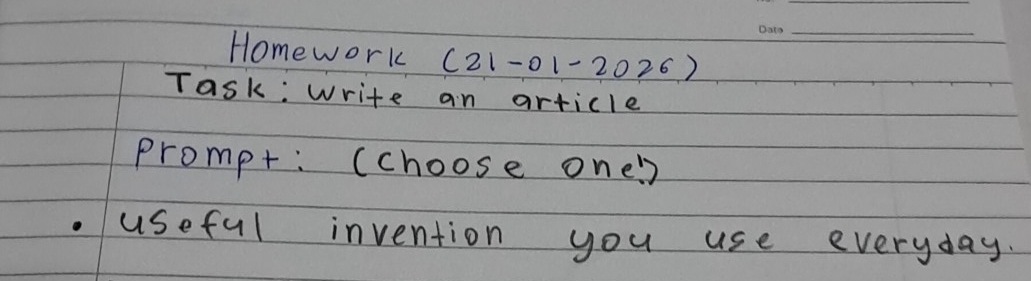 Date
Homework (21-01-2026)
Task: write an article
prompt: (choose one!)
• useful invention you use everyday.